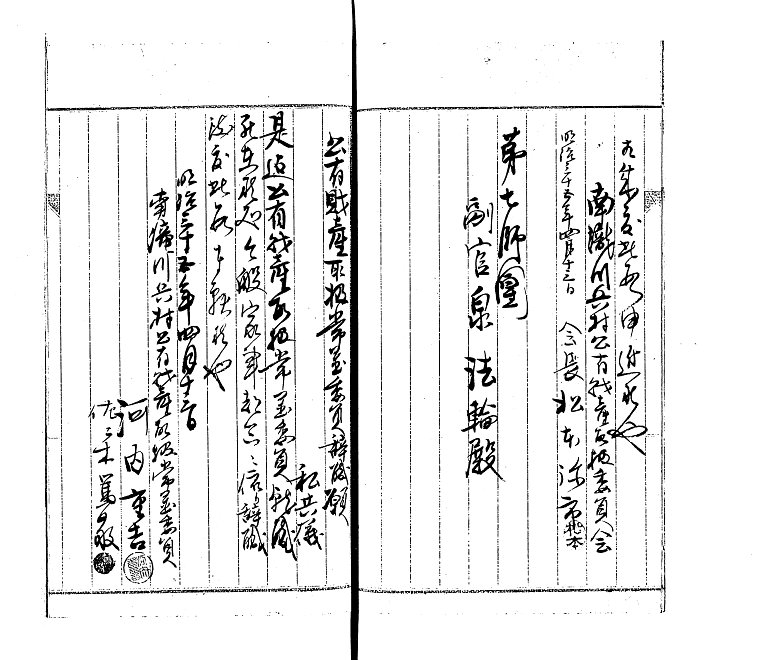 此段申進候也
南瀧川兵村公有財産取扱委員会
明治三十五年四月十三日 会長 松本弥市
第七師團
副官泉法輪殿
公有財産取扱常置委員辞職願
私共儀
是迄公有財産取扱常置委員就職
罷在候処今般家事都合ニ依リ辞職
致度此段奉願候也
明治三十五年四月十三日
南瀧川兵村公有財産取扱常置委員
河内重吉
佐々木